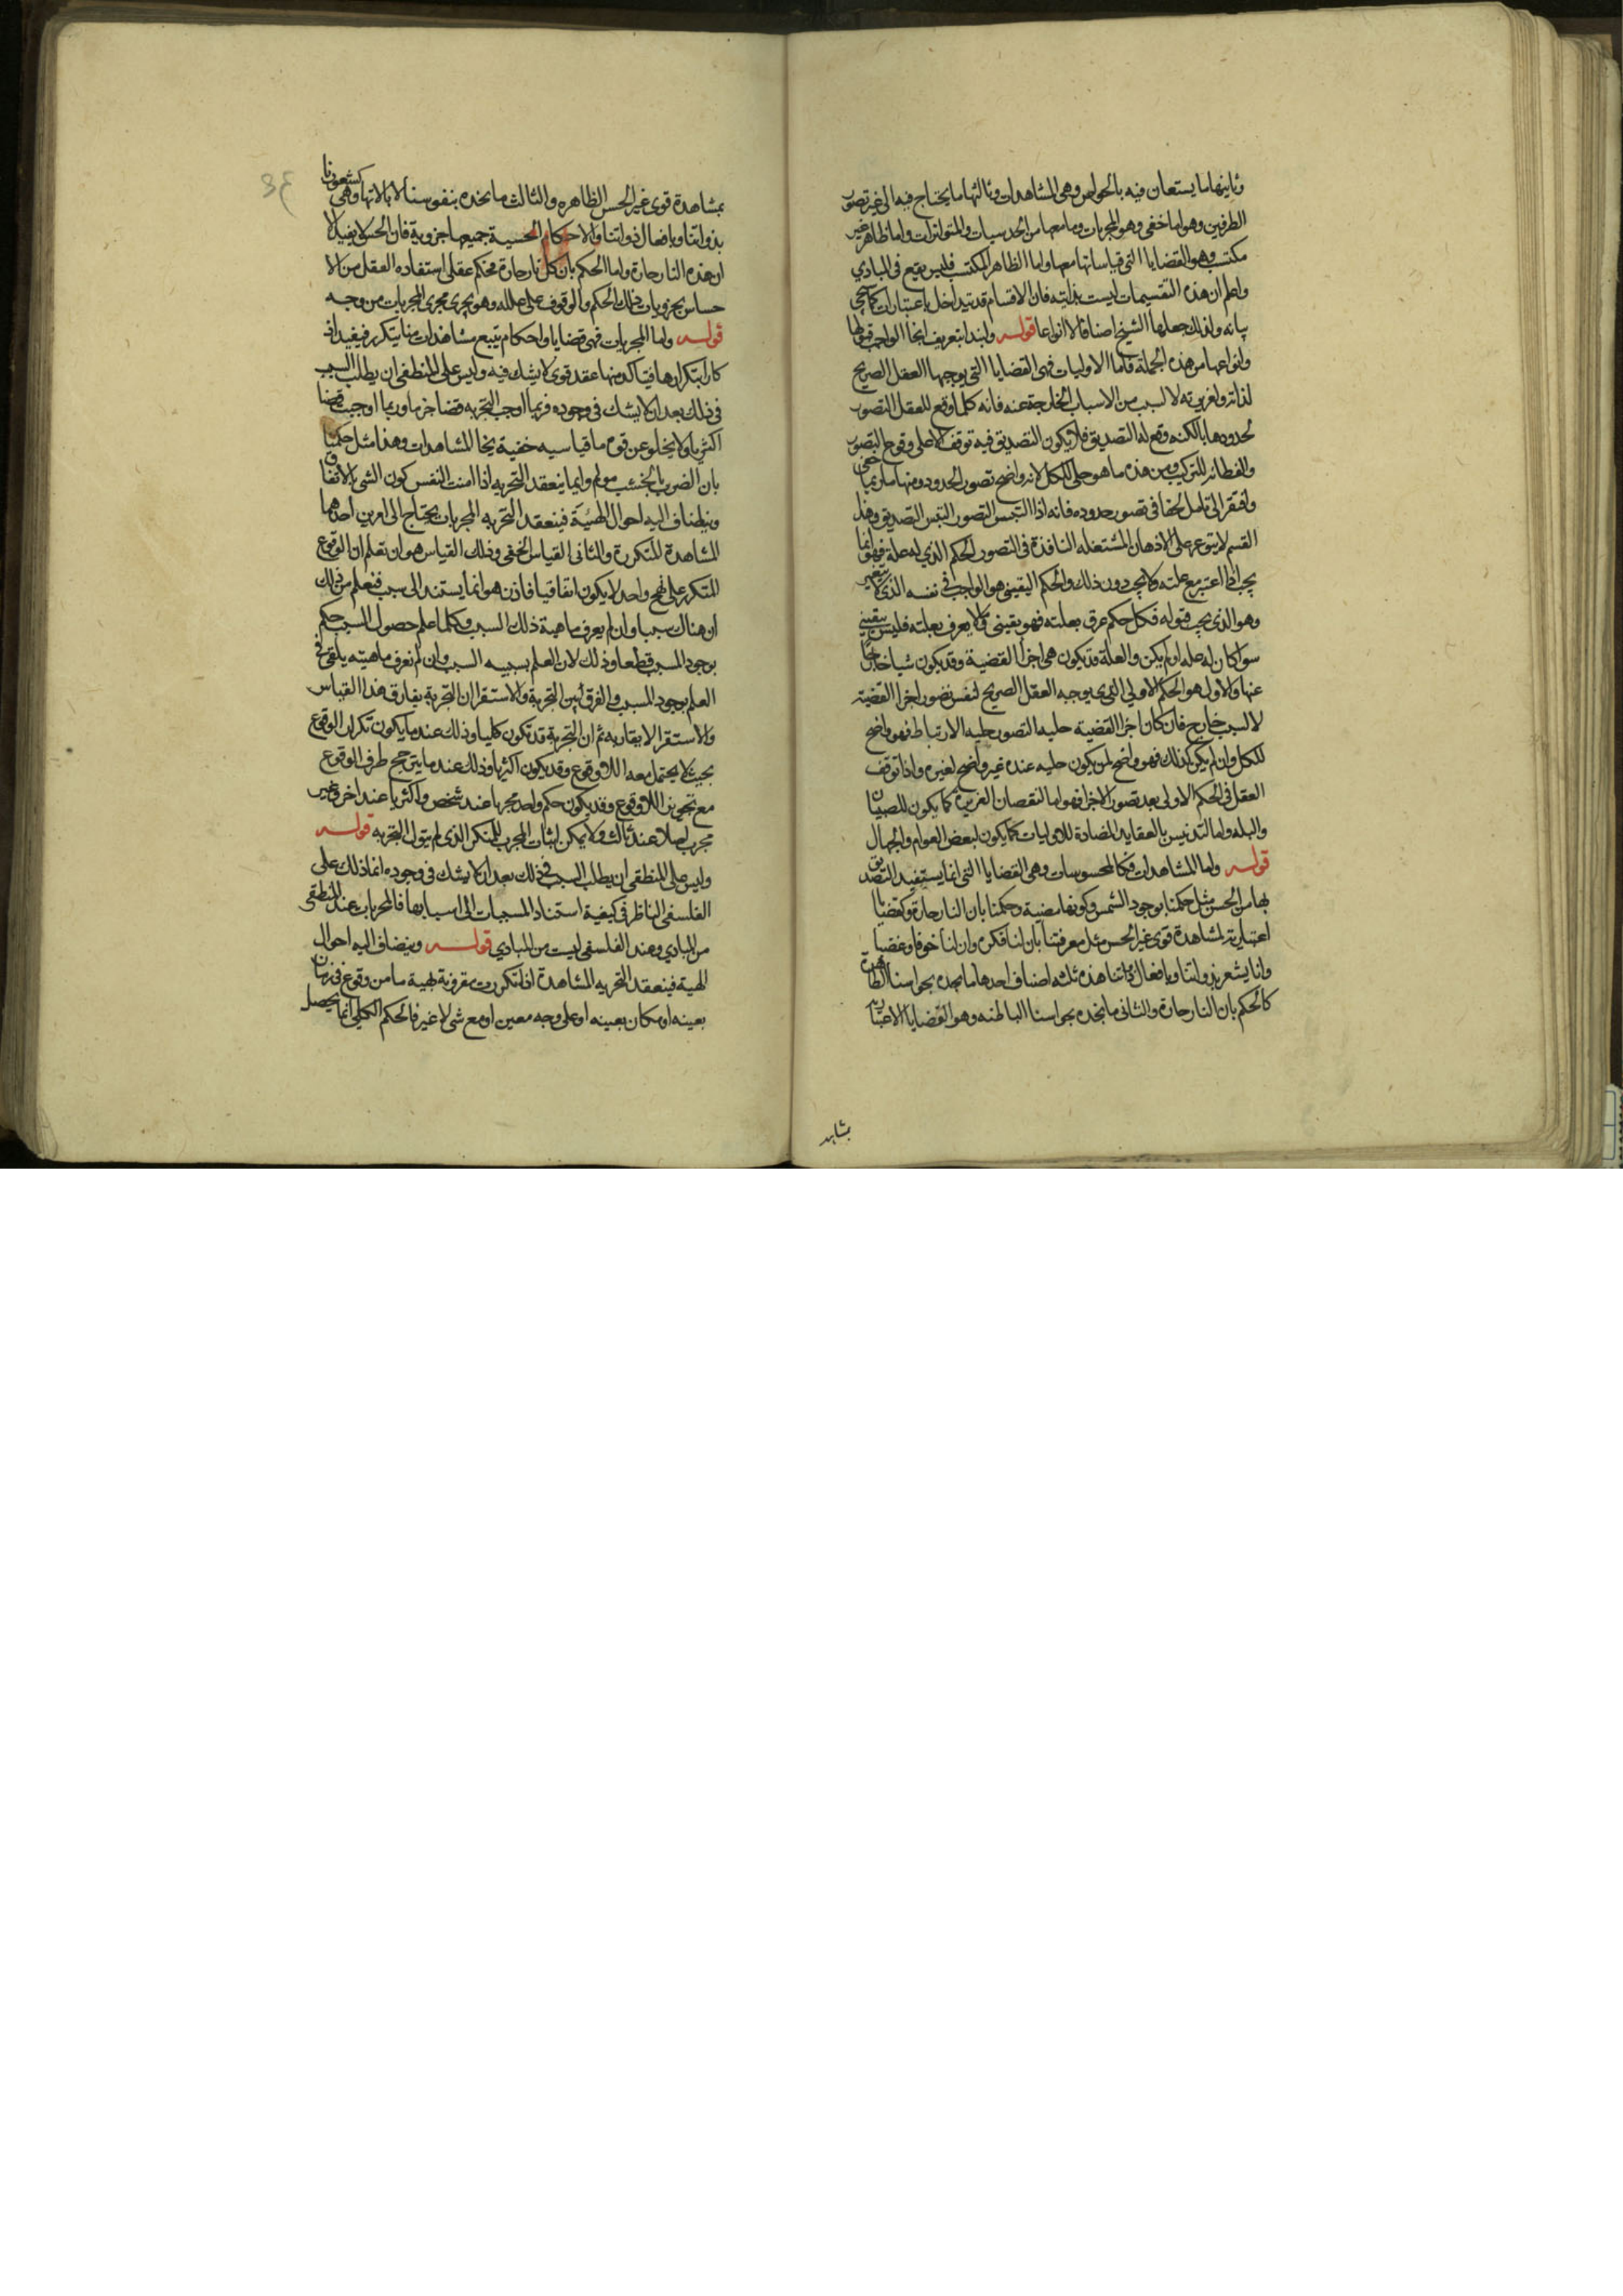 وثانيها ما يستعان فيه بالحواس وهى المشاهدات وثالثها ما يحتاج فيه الى غير تصور
الطرفين وهو اما خفى وهو المجربات وما معها من الحدسيات والمتواترات واما ظاهر غير
مكتسب وهو القضايا التى قياساتها معها واما الظاهر المكتسب فليس يقع فى المبادي
واعلم ان هذه التقسيمات ليست بذاتية فان الاقسام قد تتداخل باعتبارات كما يجى
بيانه ولذلك جعلها الشيخ اصنافا لا انواعا قوله ولنبدا بتعريف انحا الواجب قبولها
وانواعها من هذه الجملة فاما الاوليات فهى القضايا التى يوجبها العقل الصريح
لذاته ولغريزته لا لسبب من الاسباب الخارجة عنه فانه كلما وقع للعقل التصور
لحدودها بالكنه وقع له التصديق فلا يكون للتصديق فيه توقف الا على وقوع التصور
والفطانة للتركيب ومن هذه ما هو جلى للكل لانه واضح تصور الحدود ومنها ما ربما خفى
وافتقر الى تامل لخفا فى تصور حدوده فانه اذا التبس التصور التبس التصديق وهذا
القسم لا يتوعر على الاذهان المشتعله النافذة فى التصور الحكم الذي له علة فهو انما
يجب اذا اعتبر مع علته ولا يجب دون ذلك والحكم اليقينى هو الواجب فى نفسه الذى لا يتغير
وهو الذى يجب قبوله فكل حكم عرف بعلته فهو يقينى وما لا يعرف بعلته فليس بيقينى
سوا كان له علة او لم يكن والعلة قد يكون هى اجزا القضية وقد يكون شيا خارجا
عنها والاول هو الحكم الاولى الذى يوجبه العقل الصريح لنفس تصور اجزا القضية
لا لسبب خارج فان كان اجزا القضية جليه التصور جليه الارتباط فهو واضح
للكل وان لم يكن كذلك فهو واضح لمن يكون جليه عنده غير واضح لغيره واذا توقف
العقل فى الحكم الاولى بعد تصور الاجزا فهو اما لنقصان الغريزة كما يكون للصبيان
والبله واما لتدنيس بالعقايد المضادة للاوليات كما يكون لبعض العوام والجهال
قوله واما المشاهدات فكالمحسوسات وهى القضايا التى انما يستفيد التصديق
بها من الحس مثل حكمنا بوجود الشمس وكونها مضية وحكمنا بان النار حارة وكقضايا
اعتبارية لمشاهدة قوى غير الحس مثل معرفتنا بان لنا فكرة وان لنا خوفا وغضبا
وانا يشعر بذواتنا وبافعال ذواتنا هذه ثلثه اصناف احدها ما نجده بحواسنا الظاهرة
كالحكم بان النار حارة والثانى ما نجده بحواسنا الباطنه وهو القضايا الاعتبارية
بشاهد
بمشاهدة قوى غير الحس الظاهره والثالث ما نجده بنفوسنا لا بالاتها وهى كشعورنا
بذواتنا وبافعال ذواتنا والاحكام الحسية جميعها جزوية فان الحس لا يفيد الا
ان هذه النار حارة واما الحكم بان كل نار حارة فحكم عقلى استفاده العقل من الا
حساس بجزويات ذلك الحكم والوقوف على علله وهو يجرى مجرى المجربات من وجه
قوله واما المجربات فهى قضايا واحكام يتبع مشاهدات منا يتكرر فيفيد اذ
كارا بتكرارها فيتاكد منها عقد قوى لا يشك فيه وليس على المنطقى ان يطلب السبب
فى ذلك بعد ان لا يشك فى وجوده فربما اوجب التجربه قضا جزما وربما اوجبت قضا
اكثريا ولا يخلو عن قوه ما قياسيه خفية يخالط المشاهدات وهذا مثل حكمنا
بان الضرب بالخشب مولم وانما ينعقد التجربه اذا امنت النفس كون الشى بالاتفاق
وينضاف اليه احوال الهيئة فينعقد التجربه المجربات يحتاج الى امرين احدهما
المشاهدة المتكررة والثانى القياس الخفى وذلك القياس هو ان تعلم ان الوقوع
المتكرر على نهج واحد لا يكون اتفاقيا فاذن هو انما يستند الى سبب فنعلم من ذلك
ان هناك سببا وان لم يعرف ماهية ذلك السبب وكلما علم حصول السبب حكم
بوجود المسبب قطعا وذلك لان العلم بسببيه السبب وان لم نعرف ماهيته يكفى فى
العلم بوجود المسبب والفرق بين التجربة والاستقرا ان التجربة يقارن هذا القياس
والاستقرا لا يقارنه ثم ان التجربة قد تكون كليا وذلك عند ما يكون تكرار الوقوع
بحيث لا يحتمل معه اللاوقوع وقد يكون اكثريا وذلك عند ما يترجح طرف الوقوع
مع تجويز اللاوقوع وقد يكون حكم واحد مجربا عند شخص واكثريا عند اخر وغير
مجرب اصلا عند ثالث ولا يمكن اثبات المجرب للمنكر الذى لم يتول التجربه قوله
وليس على المنطقى ان يطلب السبب فى ذلك بعد ان لا يشك فى وجوده انما ذلك على
الفلسفى الناظر فى كيفية استناد المسببات الى اسبابها فالمجربات عند المنطقى
من المبادي وعند الفلسفى ليست من المبادي قوله وينضاف اليه احوال
الهية فينعقد التجربه المشاهدة اذا تكررت مقرونة بهية ما من وقوع فى زمان
بعينه او مكان بعينه او على وجه معين او مع شى لا غير فالحكم الكلى انما يحصل